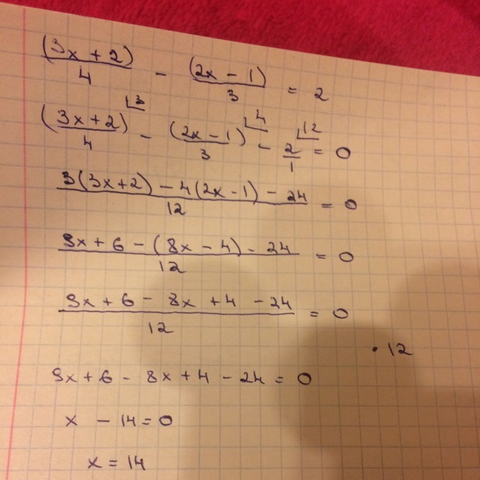 (3x + 2)/4 - (2x - 1)/3 = 2
(3x + 2)/4 ⌊3 - (2x - 1)/3 ⌊4 - 2/1 ⌊12 = 0
3(3x+2) - 4(2x-1) - 24/12 = 0
9x + 6 - (8x - 4) - 24/12 = 0
9x + 6 - 8x + 4 - 24/12 = 0
· 12
9x + 6 - 8x + 4 - 24 = 0
x - 14 = 0
x = 14